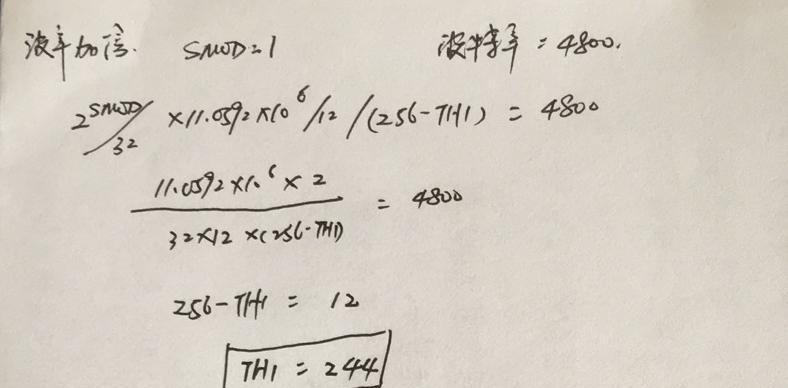 波率加倍. SMOD=1 波特率=4800.
2^SMOD/32 ×11.0592×10^6/12/(256-TH1) = 4800
11.0592×10^6×2
= 4800
32×12×(256-TH1)
256-TH1 = 12
TH1 = 244